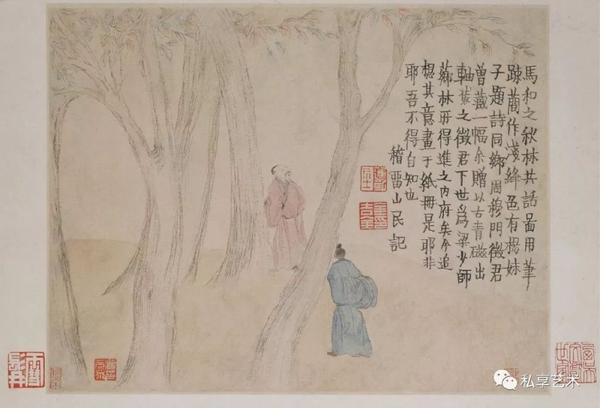 馬和之秋林共話啚用筆
疎蕳作淺絳色有楊妹
子題詩同鄉周穆門徵君
曾藏一幅余贈以古青磁出
軸裝之徵君下世爲梁少師
薌林所得進之内府矣今追
想其意畫于紙冊是耶非
耶吾不得自知也
稽畱山民記
私享艺术